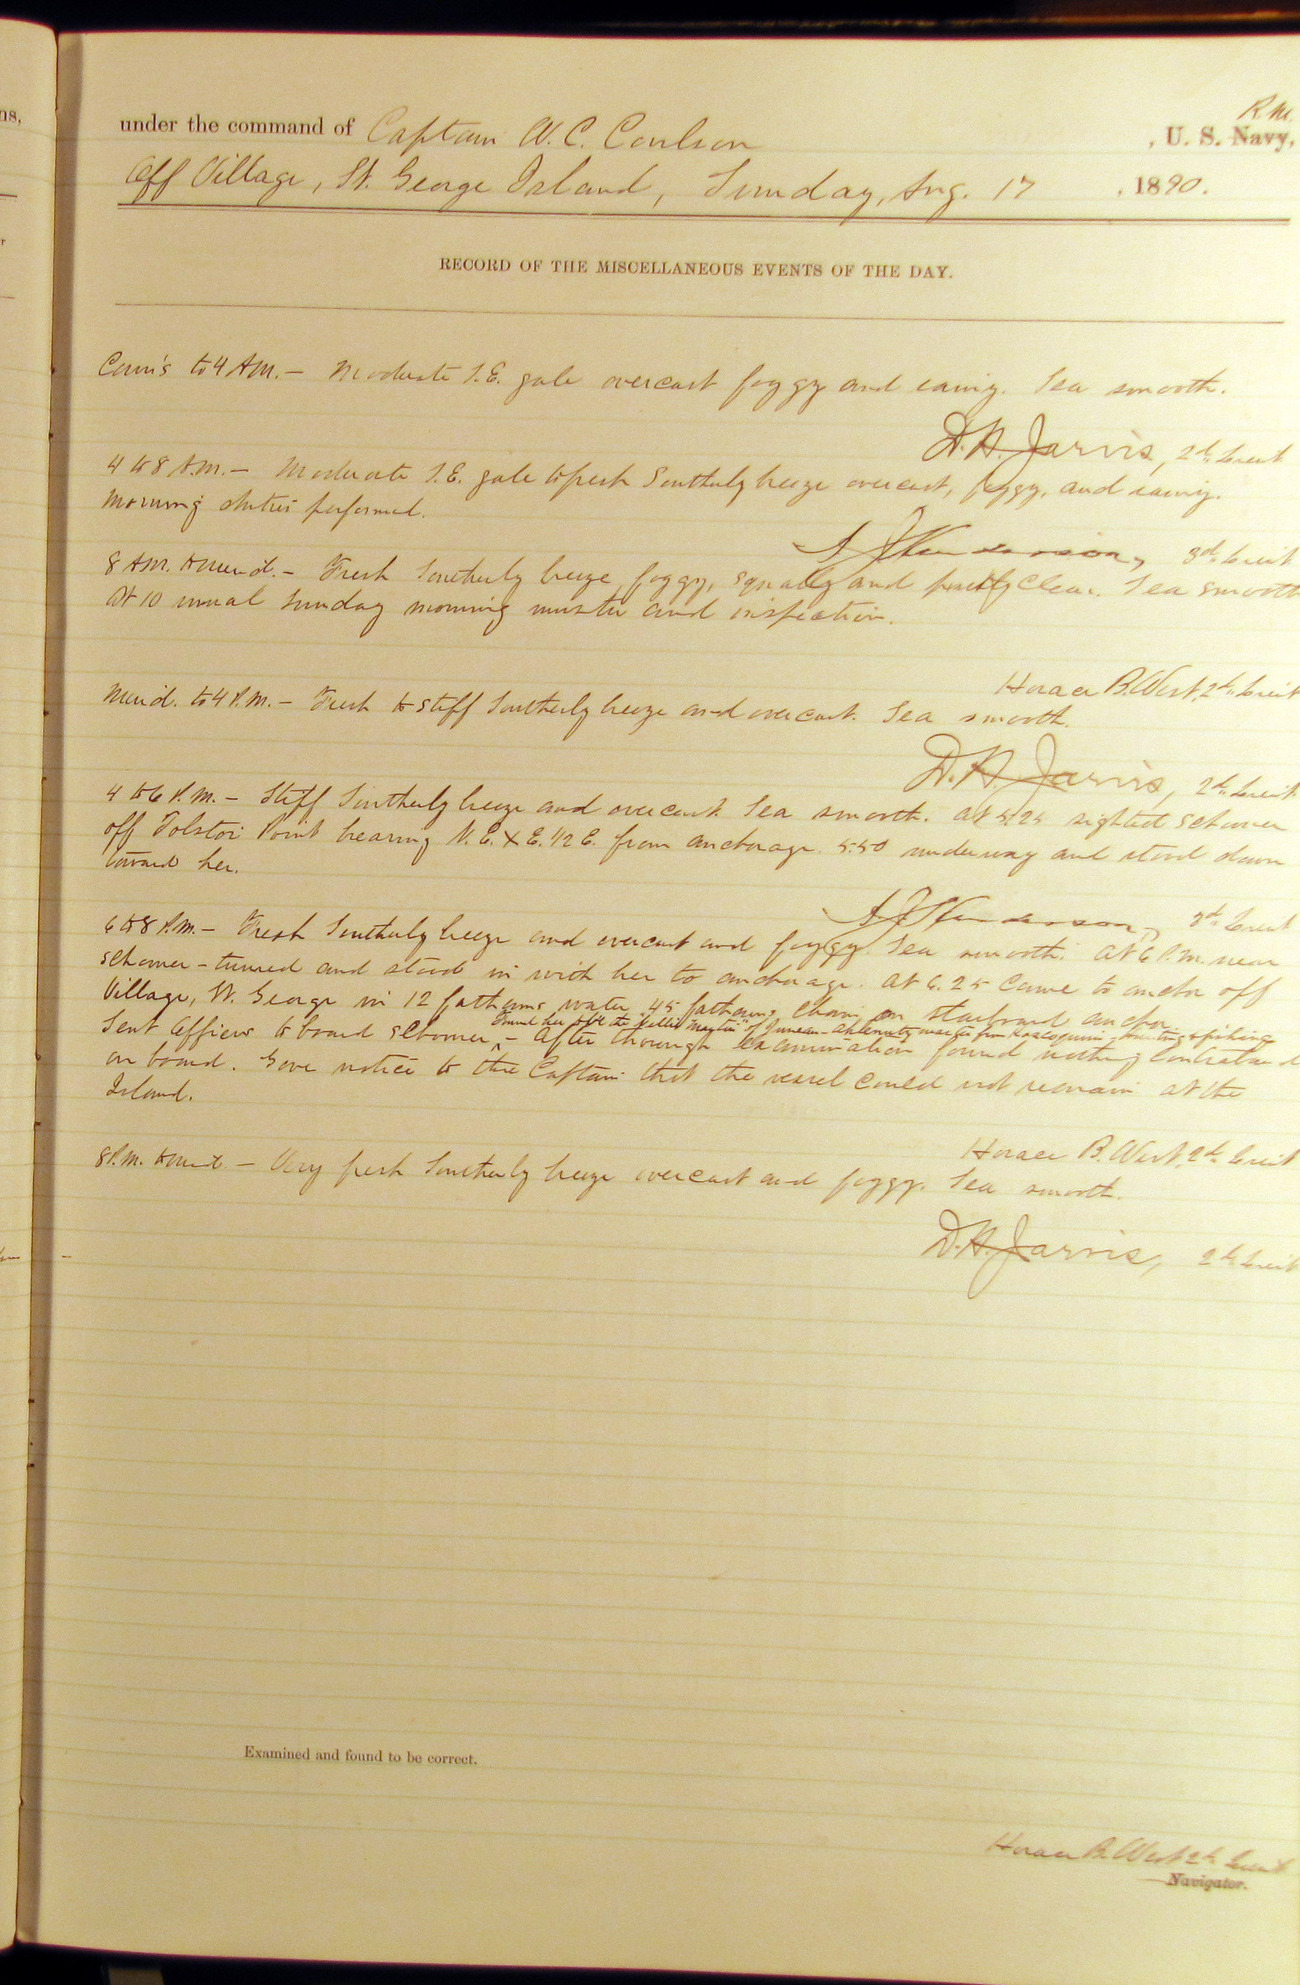 ns,
under the command of Captain W. C. Coulson R. M. , U. S. Navy,
Off Village, St. George Island, Sunday, Aug. 17 , 1890.
RECORD OF THE MISCELLANEOUS EVENTS OF THE DAY.
Com's to 4 A.M. — Moderate S.E. gale overcast foggy and rainy. Sea smooth.
D. H. Jarvis, 2d Lieut
4 to 8 A.M. — Moderate S.E. gale to fresh Southerly breeze overcast, foggy, and rainy.
Morning duties performed.
Henderson, 3d Lieut
8 A.M. to Merid. — Fresh Southerly breeze, foggy, squally and partly clear. Sea smooth
At 10 usual Sunday morning muster and inspection.
Horace B. West, 2d Lieut
Merid. to 4 P.M. — Fresh to stiff Southerly breeze and overcast. Sea smooth.
D. H. Jarvis, 2d Lieut
4 to 6 P.M. — Stiff Southerly breeze and overcast. Sea smooth. At 5.25 sighted schooner
off Tolstoi Point bearing N.E. x E. 1/2 E. from anchorage. 5.50 underway and stood down
toward her.
Henderson, 3d Lieut
6 to 8 P.M. — Fresh Southerly breeze and overcast and foggy. Sea smooth. At 6 P.M. near
schooner — turned and stood in with her to anchorage. At 6.25 came to anchor off
Village, St. George in 12 fathoms water, 45 fathoms chain on starboard anchor.
Found her to be the "Nellie Martin" of Juneau hunting & fishing
Sent Officer to board schooner, — After through examination found nothing contraband
on board. Gave notice to the Captain that the vessel could not remain at the
Island.
Horace B. West, 2d Lieut
8 P.M. to Mid. — Very fresh Southerly breeze overcast and foggy. Sea smooth.
D. H. Jarvis, 2d Lieut
Examined and found to be correct.
Horace B. West 2d Lieut
Navigator.